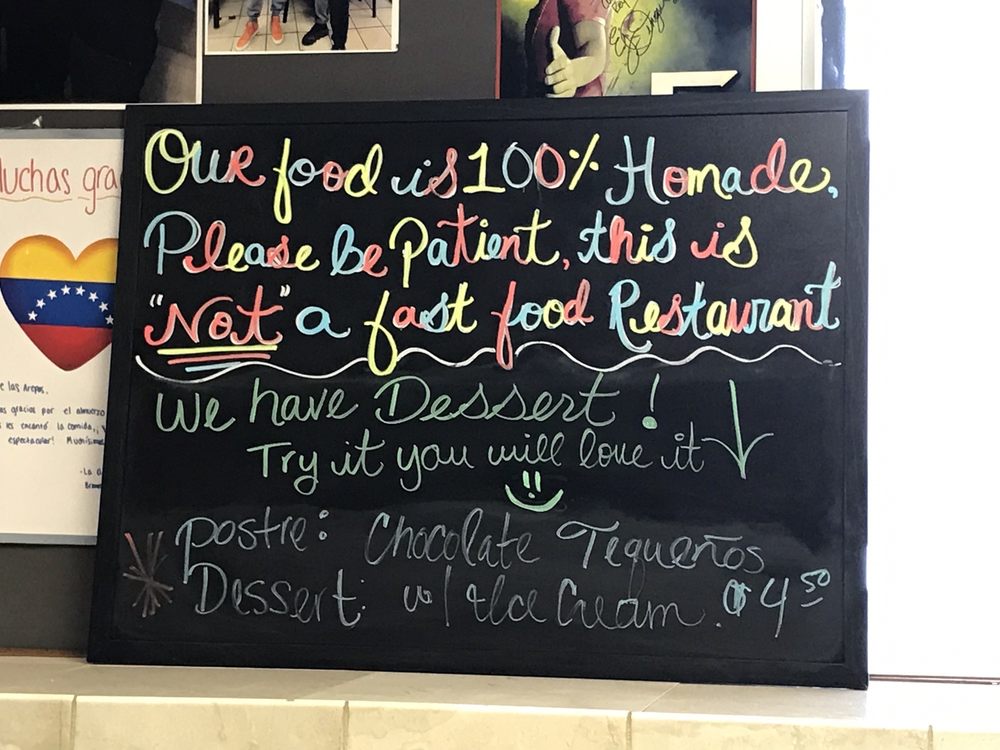 Our food is 100% Homade,
Please be Patient, this is
"Not" a fast food Restaurant
We have Dessert!
Try it you will love it
Postre: Chocolate Tequeños
Dessert: w/ Ice Cream. $4.50
Muchas gra
e las Arepas.
as gracias por el almuerzo
les encantó la comida,
espectacular! Muchísimas
-La